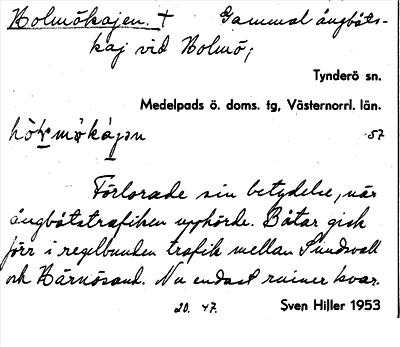 Holmökajen. † Gammal ångbåts-
kaj vid Holmö;
Tynderö sn.
Medelpads ö. doms. tg, Västernorrl. län.
57
Förlorade sin betydelse, när
ångbåtstrafiken upphörde. Båtar gick
förr i regelbunden trafik mellan Sundsvall
och Härnösand. Nu endast ruiner kvar.
20. 47. Sven Hiller 1953